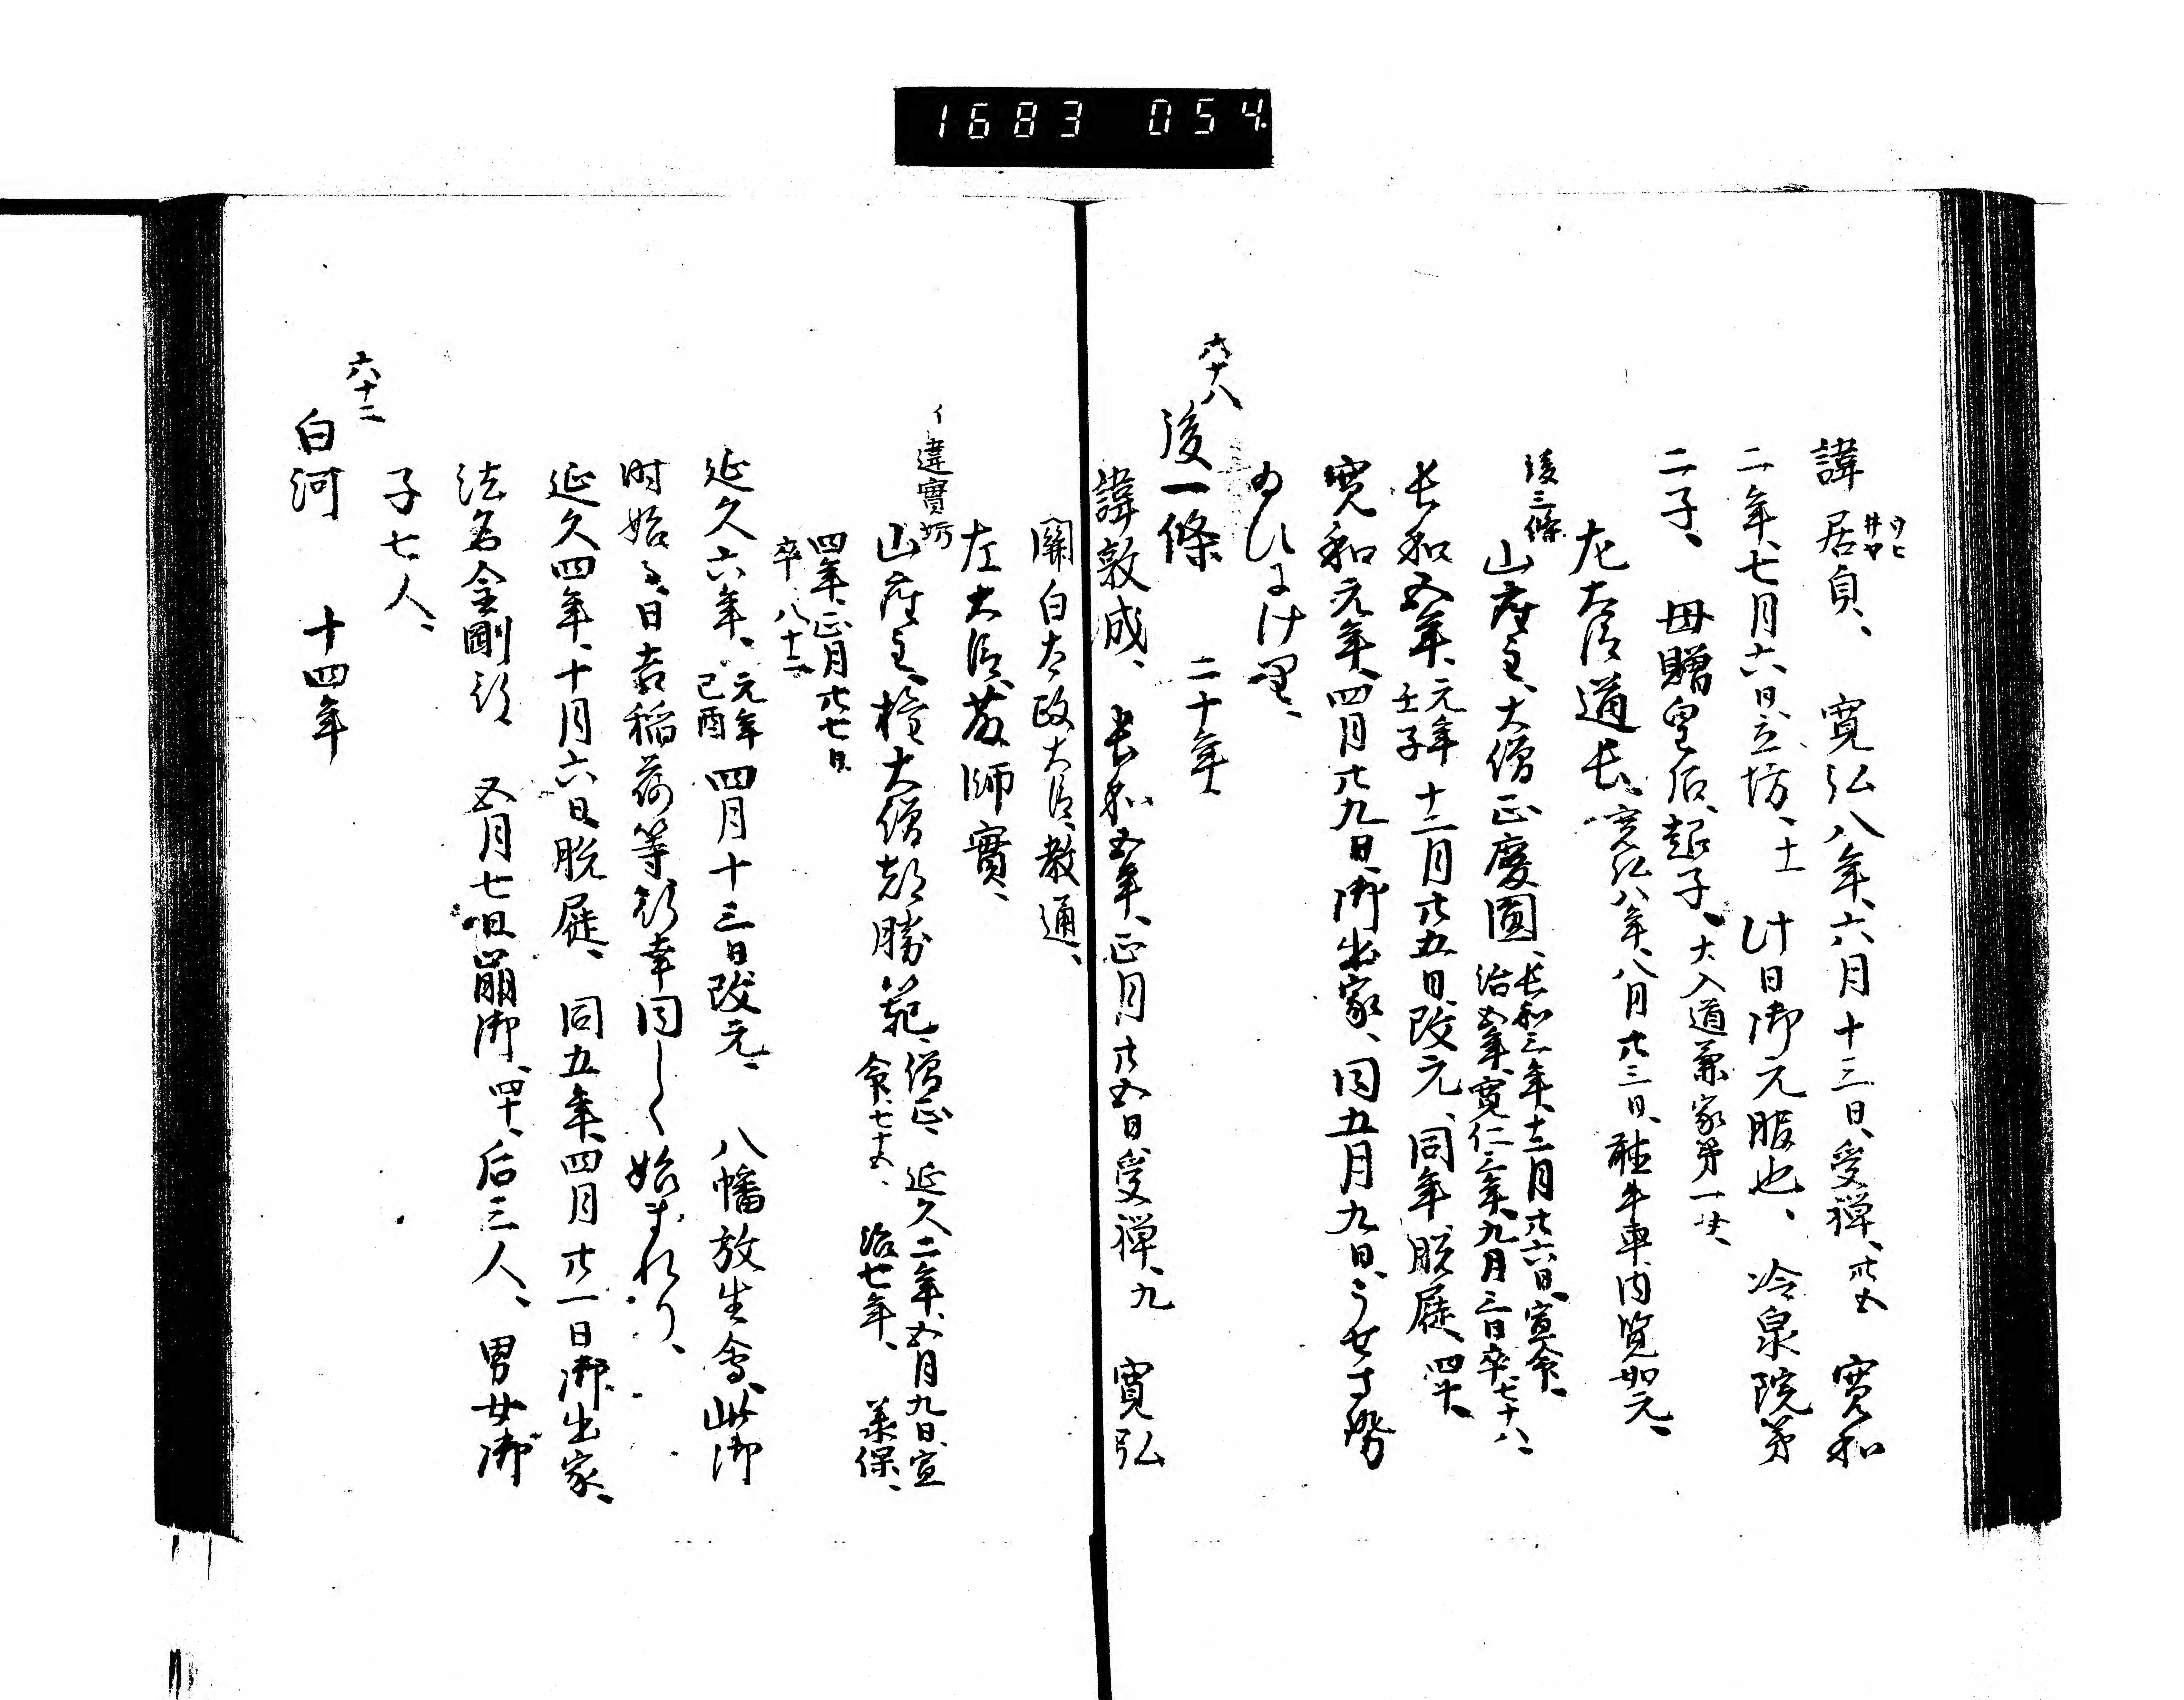 1683 054
諱居貞、寛弘八年、六月十三日、受禅、廿五寛和
二年、七月六日、立坊、十一此日御元服也、冷泉院第
二子、母贈皇后、超子、大入道兼家第一女、
左大臣道長、寛弘八年、八月廿三日、聴牛車、内覧如元、
後三條
山座主、大僧正慶圓、長和三年、十二月廿六日、宣命、
治五年、寛仁三年、九月三日卒、七十八、
長和五年、元年壬子十二月廿五日改元、同年脱屣、四十一
寛和元年、四月廿九日、御出家、同五月九日、うせさせ
給ひにけり、
六十八
後一條 二十年
諱敦成、長和五年、正月廿五日、受禅、九 寛弘
關白太政大臣、教通、
左大臣、藤師實、
イ違實坊
山座主、権大僧都勝範、僧正、延久二年、五月九日、宣
命、七十五、治七年、承保、
四年、正月廿七日
卒、八十二
延久六年、元年己酉四月十三日改元、八幡放生會、此御
時始、日吉稲荷等行幸同しく始まれり、
延久四年、十月六日脱屣、同五年、四月廿一日御出家、
法名金剛行 五月七日崩御、四十、后三人、男女御
子七人、
六十二
白河 十四年